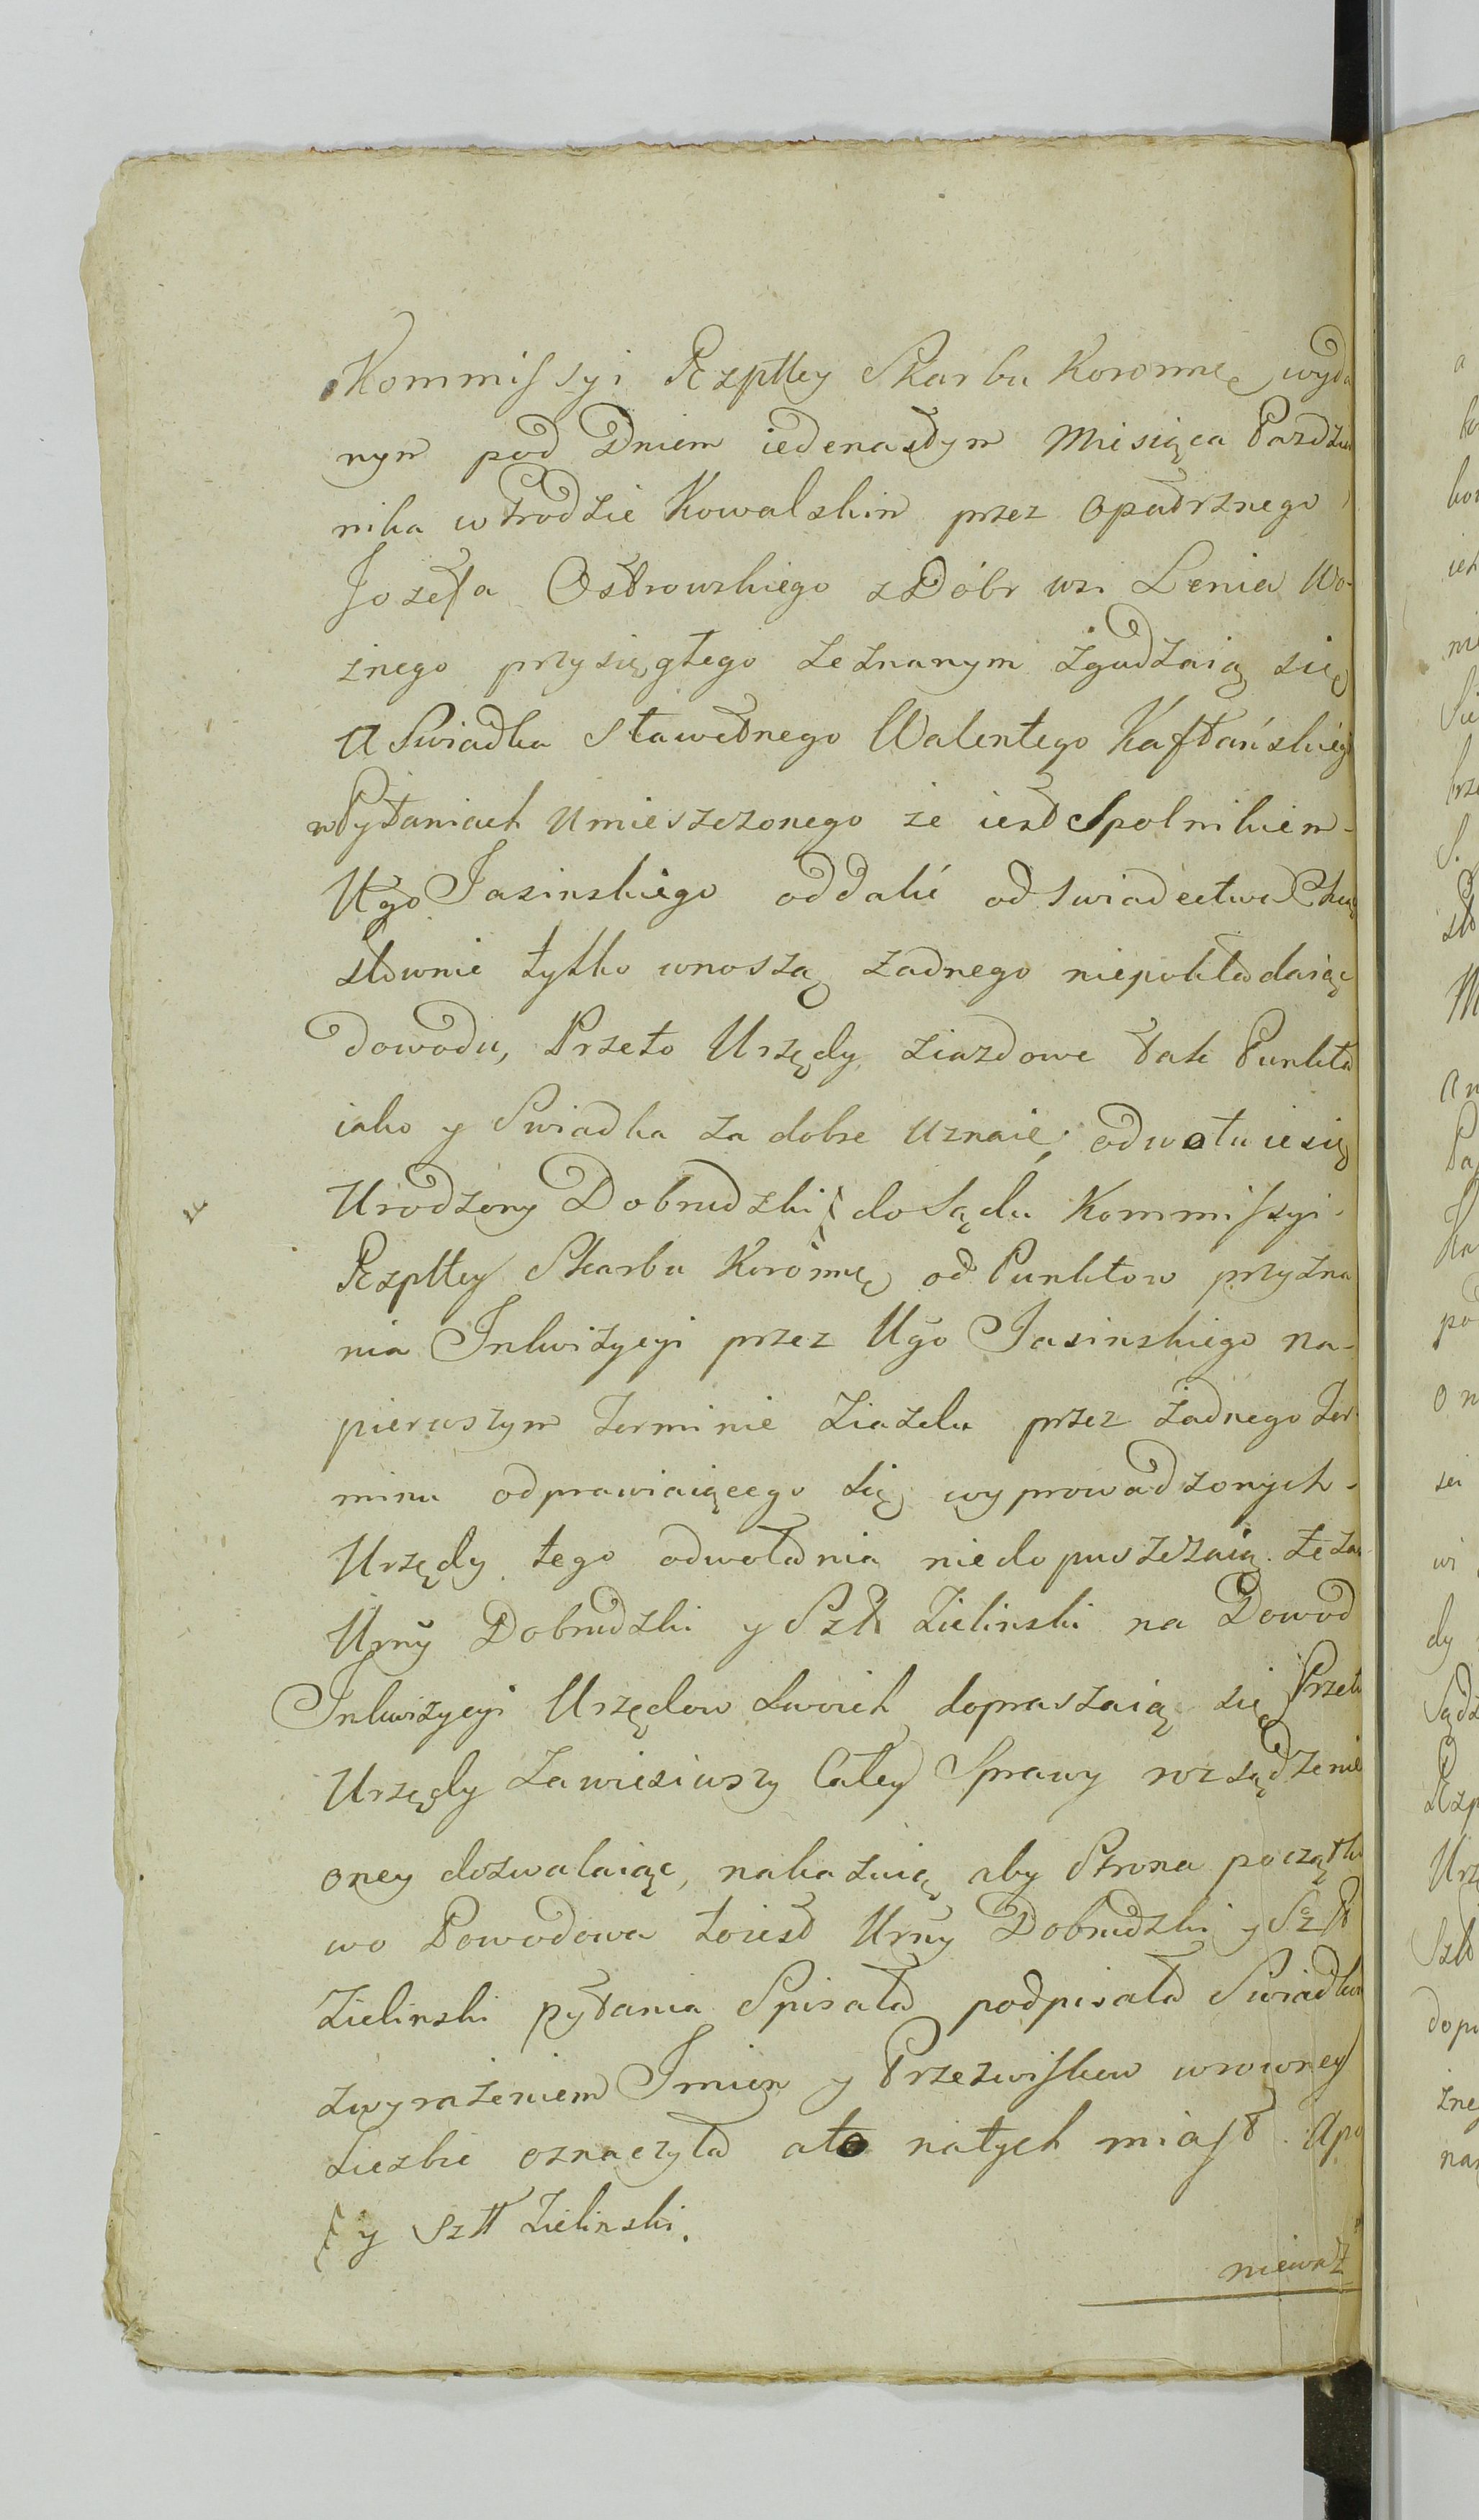 Kommissyi Rzpltey Skarbu Koronne wyda
nym pod Dniem iedenastym Miesiąca Pazdzier
nika w Grodzie Kowalskim przez Opatrznego
Jozefa Ostrowskiego z Dóbr wsi Lenia Wo-
żnego przysięgłego zeznanym zgadzaią się
A Swiadka Sławetnego Walentego Kaftańskieg
w Pytaniach Umieszczonego ze iest Spolnikiem
Ugo Jasinskiego oddalić od swiadectwa Chcą
słownie tylko wnoszą żadnego niepokładaiąc
dowodu, Przeto Urzędy ziazdowe tak Punkta
iako y Swiadka za dobre Uznaie, odwołuie się
Urodzony Dobrudzki do Sądu Kommissyi
Rzpltey Skarbu Koronne od Punktow przyzna
nia Inkwizycyi przez Ugo Jasinskiego na-
pierwszym Terminie Ziazdu przez żadnego Ter
minu odprawiaiącego się wyprowadzonych
Urzędy tego odwołania niedopuszczaią. że zaś
Urny Dobrudzki y Szlt Zielinski na Dowod
Inkwizycyi Urzędow Swoich dopraszaią się Przeto
Urzędy Zawiesiwszy Całey Sprawy rozsądzenie
oney dozwalaiąc, nakazuią aby Strona początko
wo Powodowa toiest Urny Dobrudzki y Szlt
Zielinski pytania Spisała podpisała Swiadkow
zwyrażeniem Imion y Przezwiskow wrowney
Liczbie oznaczyła a to natychmiast. A po
y Szlt Zielinski.
nieważ